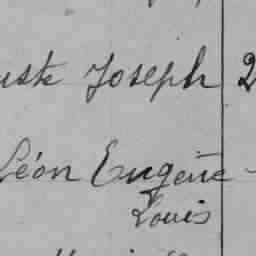 Joseph 2
Léon Eugène -
Louis